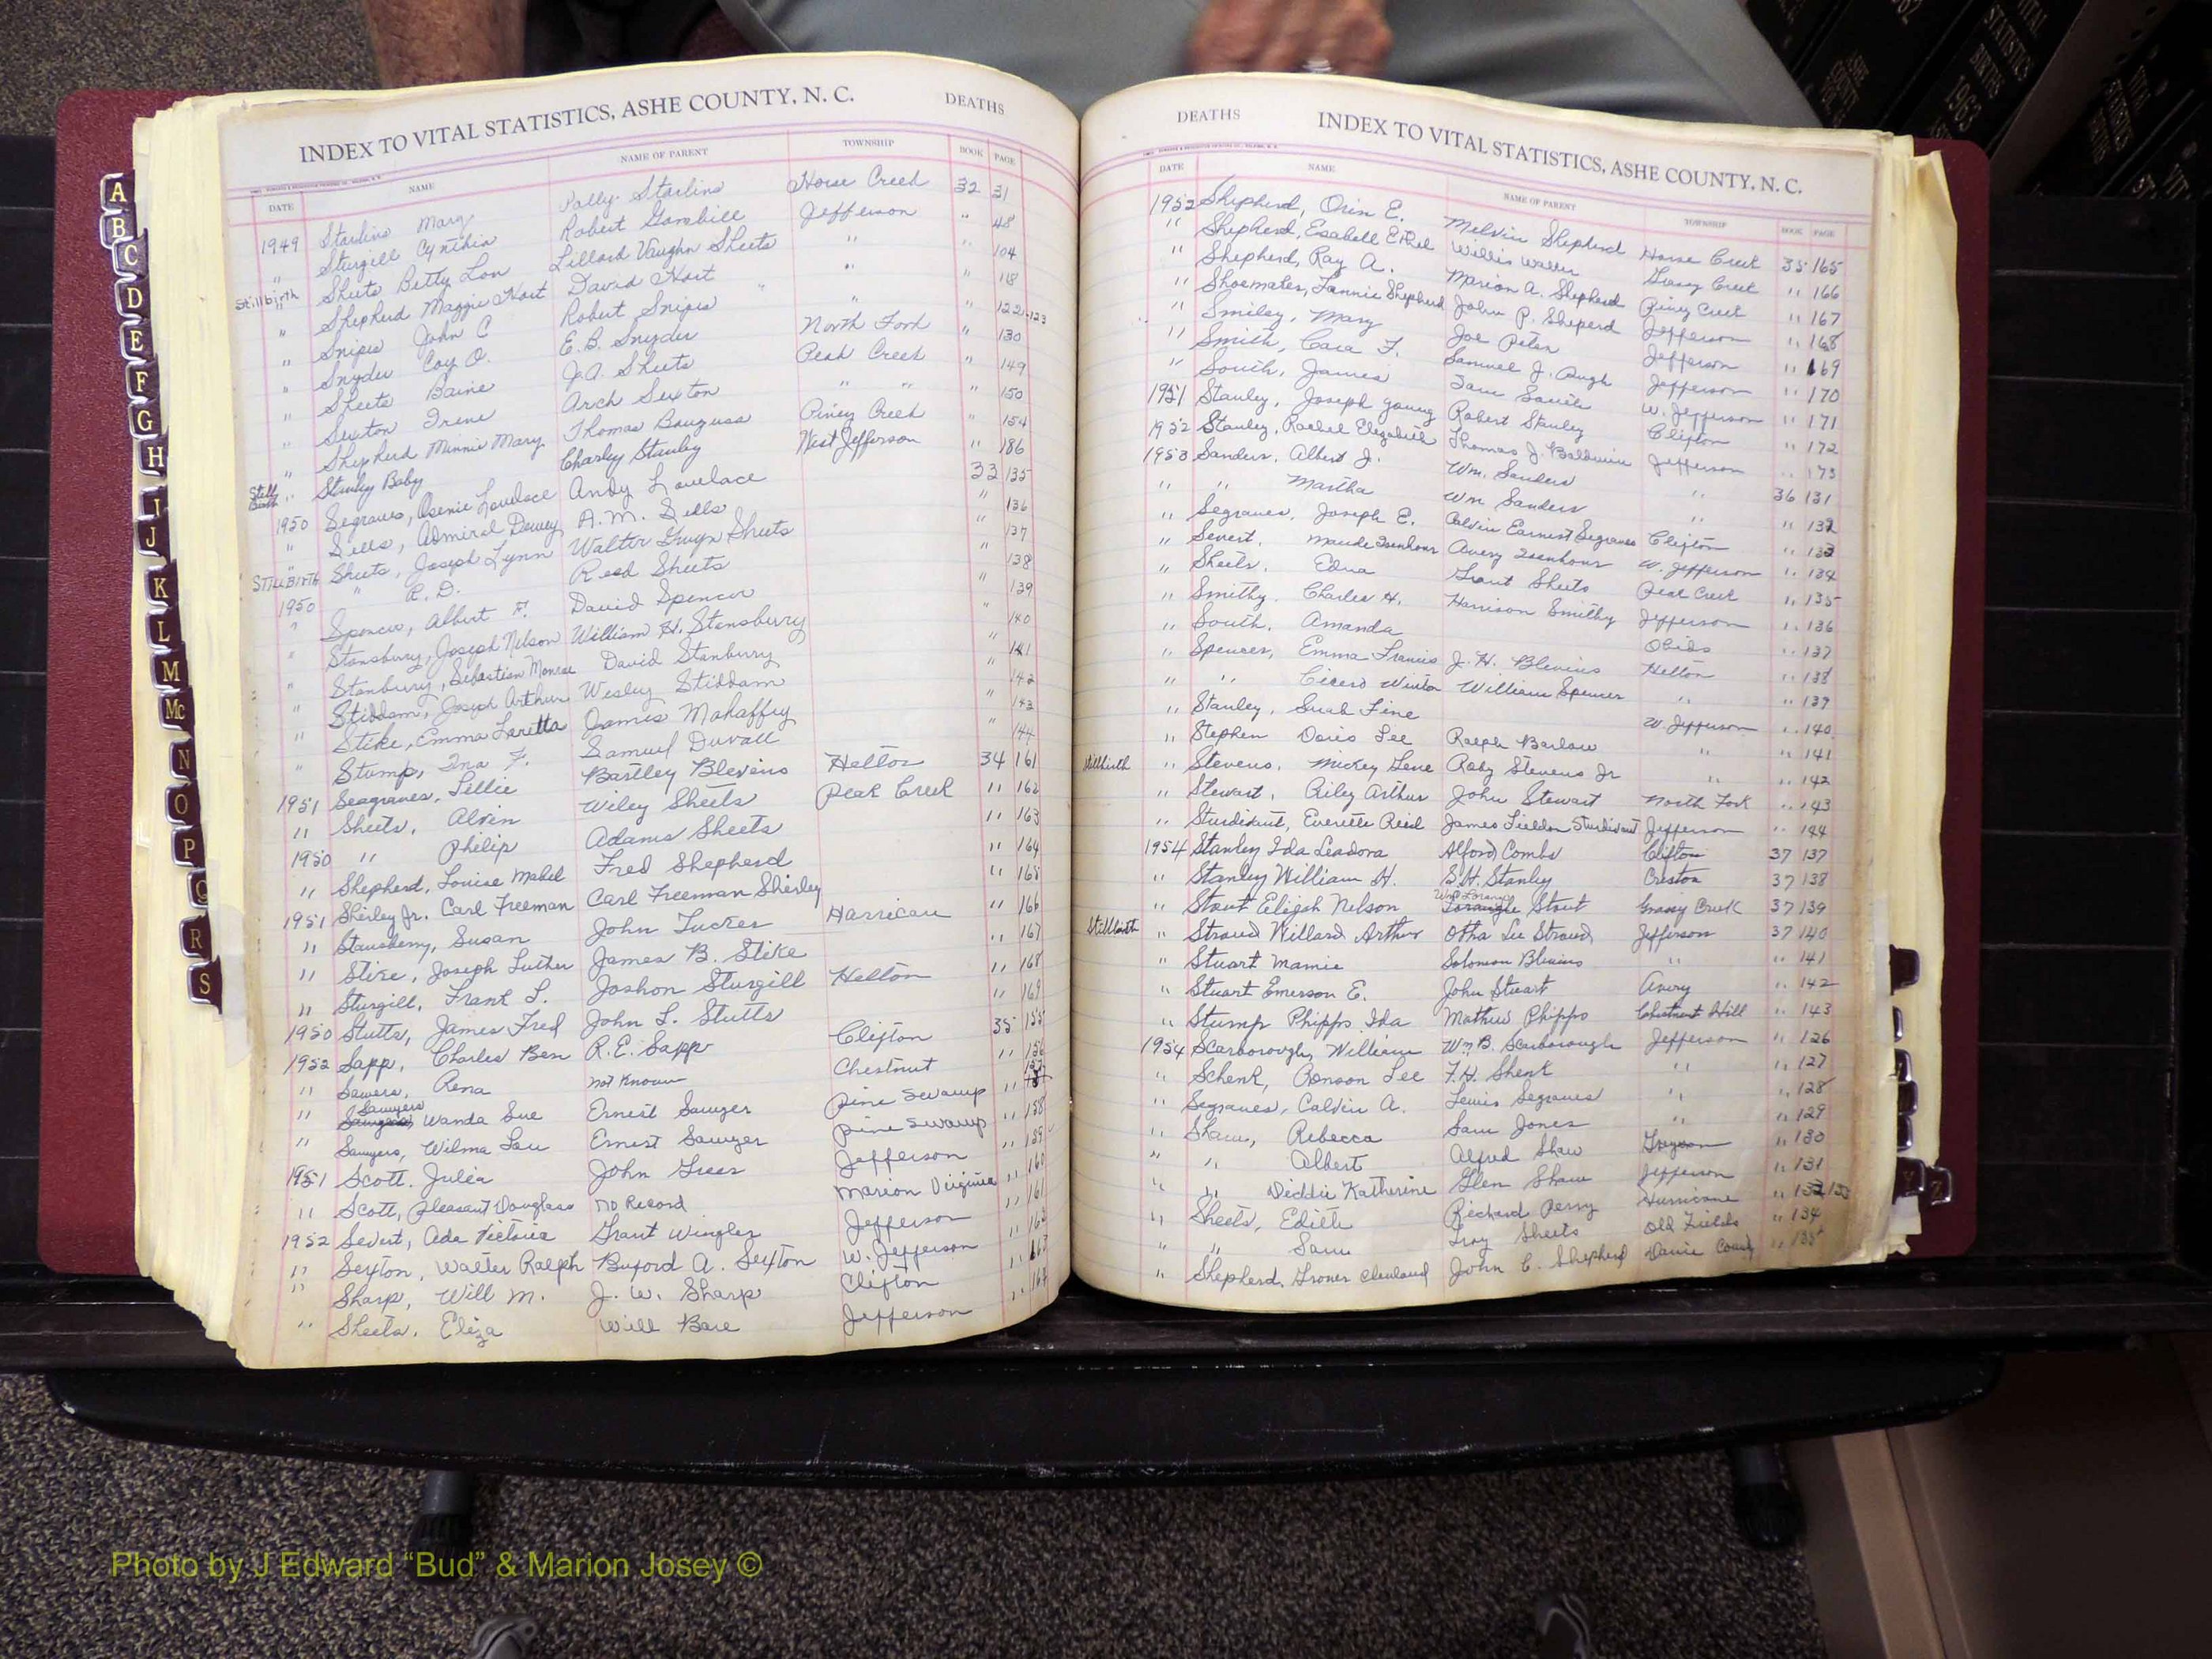 INDEX TO VITAL STATISTICS, ASHE COUNTY, N. C. DEATHS
DATE NAME NAME OF PARENT TOWNSHIP BOOK PAGE
1949 Starlins Mary Polly Starlins Horse Creek 32 31
" Sturgill Cynthia Robert Gambill Jefferson " 48
Stillbirth " Sheets Betty Lou Lillard Vaughn Sheets " " 104
" Shepherd Maggie Hart David Hart " " 118
" Snipes John C Robert Snipes " " 122-123
" Snyder Coy O. E.B. Snyder North Fork " 130
" Sheets Baine J.A. Sheets Peak Creek " 149
" Sexton Irene Arch Sexton " " " 150
" Shepherd Minnie Mary Thomas Bauguss Piney Creek " 154
Still Birth " Stanley Baby Charley Stanley West Jefferson " 186
1950 Segraves, Osenie Lovelace Andy Lovelace 33 135
" Sells, Admiral Dewey A.M. Sells " 136
STILLBIRTH Sheets, Joseph Lynn Walter Gwyn Sheets " 137
1950 " R.D. Reed Sheets " 138
" Spencer, Albert F. David Spencer " 139
" Stansbury, Joseph Nelson William H. Stansbury " 140
" Stanbury, Sebastian Monroe David Stanburry " 141
" Stiddam, Joseph Arthur Wesley Stiddam " 142
" Stike, Emma Loretta Mahaffey " 143
" Stump, Ina F. Samuel Duvall " 144
1951 Seagraves, Lillie Bartley Blevins Helton 34 161
" Sheets, Alvin Wiley Sheets Peak Creek " 162
1950 " Philip Adams Sheets " 163
" Shepherd, Louise Mabel Fred Shepherd " 164
1951 Shirley Jr. Carl Freeman Carl Freeman Shirley " 165
" Stansberry, Susan John Tucker Harrican " 166
" Stike, Joseph Luther James B. Stike " 167
" Sturgill, Frank L. Joshon Sturgill Helton " 168
1950 Stutts, James Fred John L. Stutts " 169
1952 Sapp, Charles Ben R.E. Sapp Clifton 35 155
" Sawers, Rena Not Known Chestnut " 156
" Sawyers Wanda Sue Ernest Sawyer Pine Swamp " 157
" Sawyers, Wilma Lou Ernest Sawyer Pine Swamp " 158
1951 Scott. Julia John Greer Jefferson " 159
" Scott, Pleasant Douglass No Record Marion Virginia " 160
1952 Severt, Ada Victoria Grant Wingler Jefferson " 161
" Sexton, Walter Ralph Buford A. Sexton W. Jefferson " 162
" Sharp, Will M. J. W. Sharp Clifton " 163
" Sheets, Eliza Will Bare Jefferson " 164
DEATHS INDEX TO VITAL STATISTICS, ASHE COUNTY, N. C.
DATE NAME NAME OF PARENT TOWNSHIP BOOK PAGE
1952 Shepherd, Orin E. Melvin Shepherd Horse Creek 35 165
" Shepherd, Esabell Ethel Willis Walter Grassy Creek " 166
" Shepherd, Ray A. Marion A. Shepherd Piney Creek " 167
" Shoemater, Fannie Shepherd John P. Sheperd Jefferson " 168
" Smiley, Mary Joe Peter Jefferson " 169
" Smith, Cara F. Samuel J. Pugh Jefferson " 170
" South, James Sam South W. Jefferson " 171
1951 Stanley, Joseph Young Robert Stanley Clifton " 172
1952 Stanley, Rachel Elizabeth Thomas J. Baldwin Jefferson " 173
1953 Sanders, Albert J. Wm. Sanders " 36 131
" " Martha Wm Sanders " " 132
" Segraves, Joseph E. Calvin Earnest Segraves Clifton " 133
" Severt. Maude Isenhour Avery Isenhour W. Jefferson " 134
" Sheets. Edna Grant Sheets Peak Creek " 135
" Smithy. Charles H. Harrison Smithy Jefferson " 136
" South. Amanda Obids " 137
" Spencer, Emma Francis J. H. Blevins Helton " 138
" " Cicero Winton William Spencer " " 139
" Stanley, Suab Fine W. Jefferson " 140
" Stephen Doris Lee Ralph Barlow " " 141
Stillbirth " Stevens. Mickey Gene Roby Stevens Jr " " 142
" Stewart, Riley Arthur John Stewart North Fork " 143
" Sturdivant, Everette Reid James Fieldon Sturdivant Jefferson " 144
1954 Stanley Ida Leadora Alford Combs Clifton 37 137
" Stanley William H. S.H. Stanley Creston 37 138
" Stout Elijah Nelson Stout Grassy Creek 37 139
Stillbirth " Stroud Willard Arthur Otha Lee Stroud Jefferson 37 140
" Stuart Mamie Solomon Blevins " " 141
" Stuart Emerson E. John Stuart Avery " 142
" Stump Phipps Ida Mathew Phipps Chestnut Hill " 143
1954 Scarborough, William Wm B. Scarborough Jefferson " 126
" Schenk, Ronson Lee F.H. Shenk " " 127
" Segraves, Calvin A. Lewis Segraves " " 128
" Shaw, Rebecca Sam Jones " " 129
" " Albert Alfred Shaw Grayson " 130
" " Diddie Katherine Glen Shaw Jefferson " 131
" Sheets, Edith Richard Perry Hurricane " 132 133
" " Sam Troy Sheets Old Fields " 134
" Shepherd. Grover Cleveland John C. Shepherd Davie County " 135
A
B
C
D
E
F
G
H
I
J
K
L
M
Mc
N
O
P
Q
R
S
Z
VITAL STATISTICS BIRTHS 1963
Photo by J Edward “Bud” & Marion Josey ©